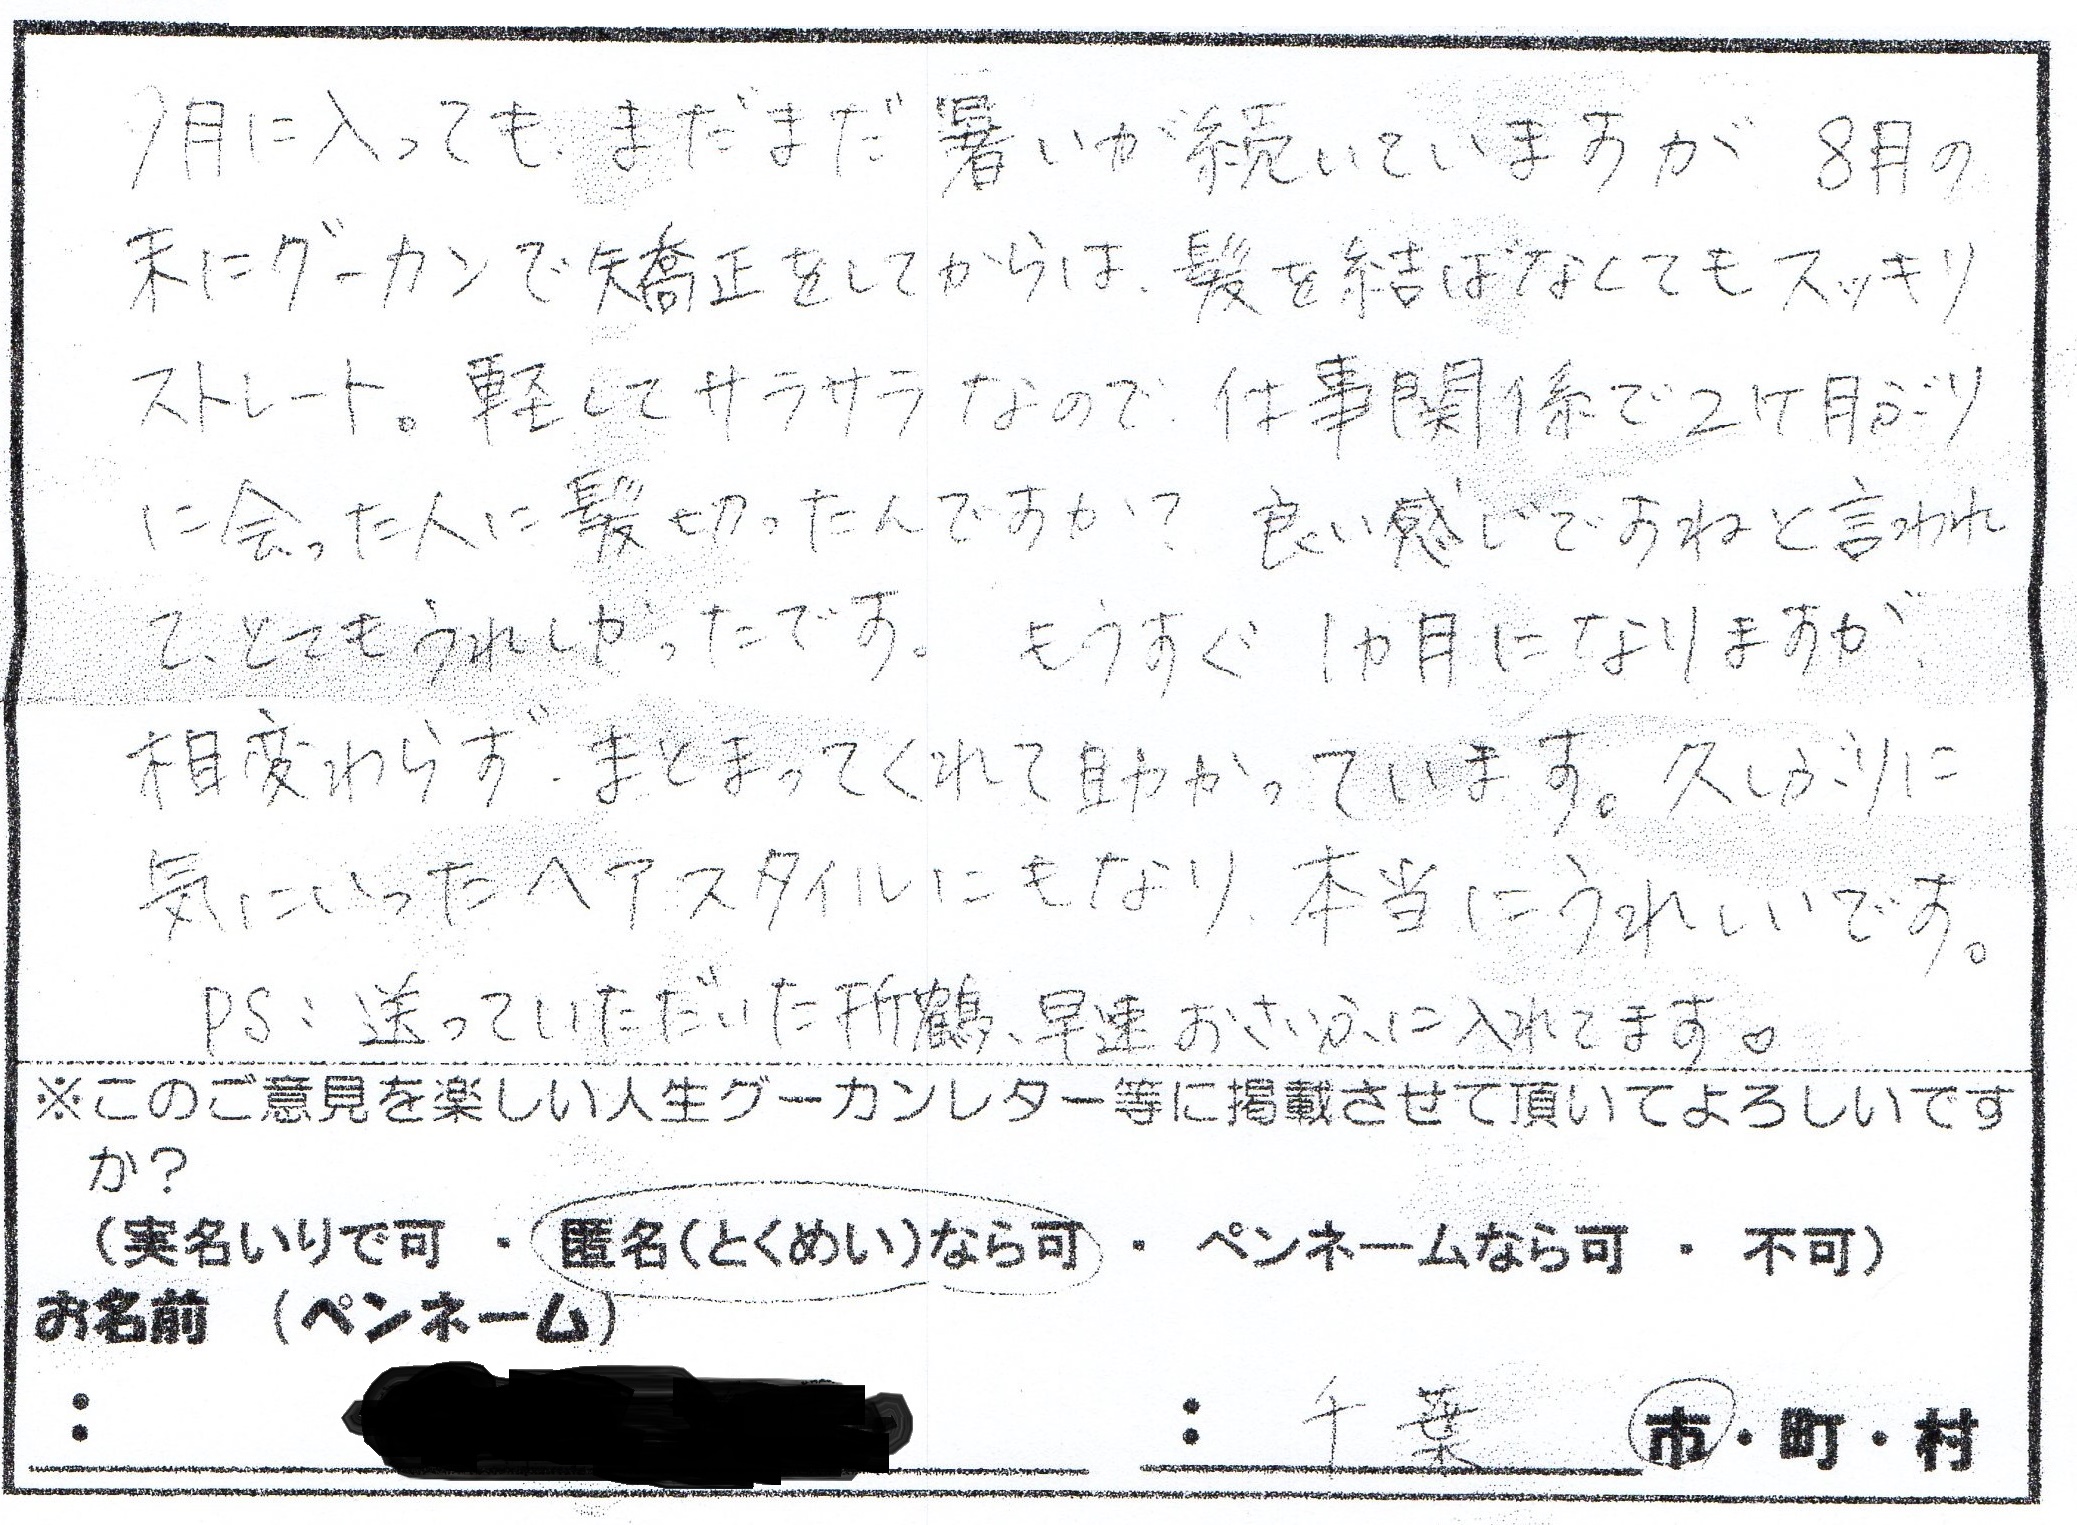 9月に入っても、まだまだ暑いが続いていますが 8月の
末にグーカンで矯正をしてからは、髪を結ばなくてもスッキリ
ストレート。軽してサラサラなので、仕事関係で2ヶ月ぶり
に会った人に髪切ったんですか？ 良い感じですねと言われ
て、とてもうれしかったです。 もうすぐ 1カ月になりますが、
相変わらず、まとまってくれて助かっています。久しぶりに
気にいったヘアスタイルにもなり、本当にうれしいです。
PS：送っていただいた折鶴、早速おさいふに入れてます。
※このご意見を楽しい人生グーカンレター等に掲載させて頂いてよろしいです
か？
（実名いりで可 ・ 匿名（とくめい）なら可 ・ ペンネームなら可 ・ 不可）
お名前 （ペンネーム）
： ： 千葉 市・町・村